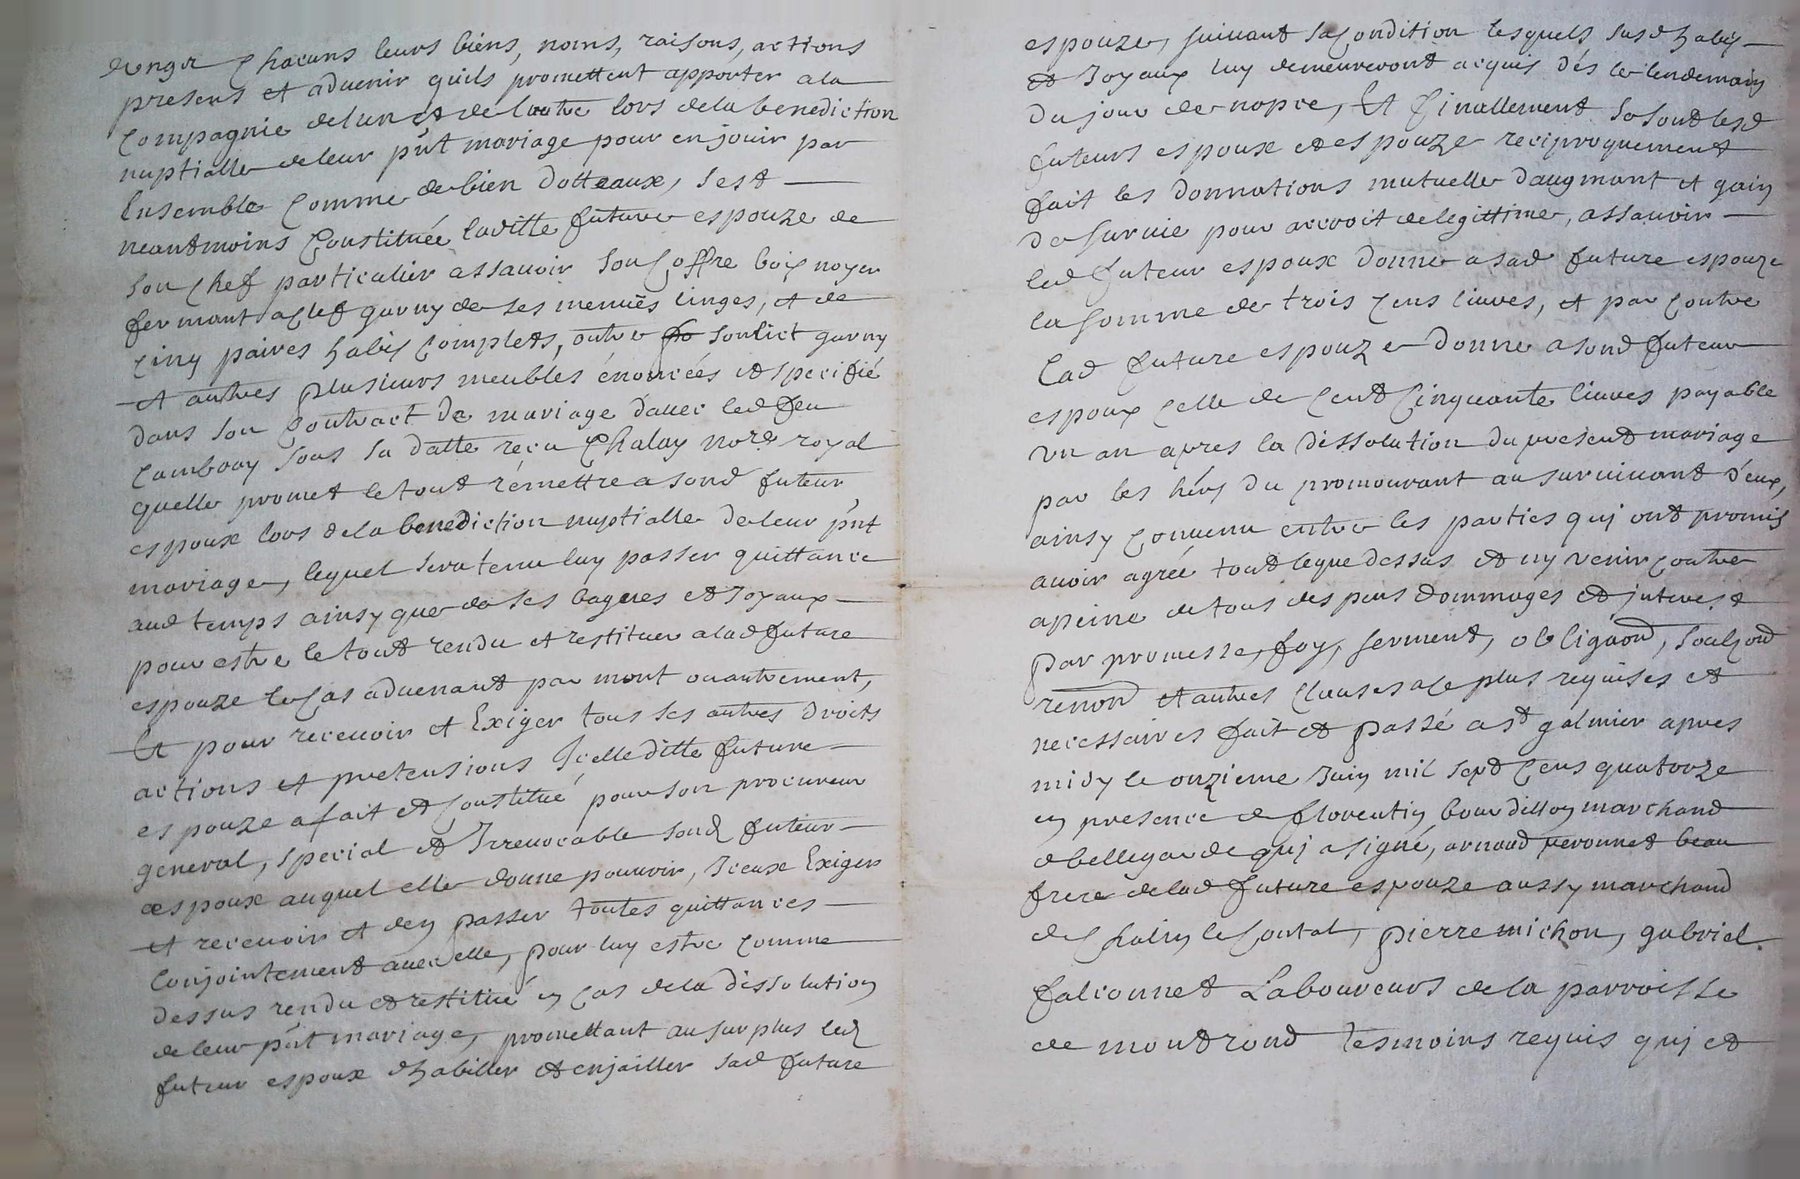 chacuns leurs biens, noms, raisons, actions
presens et aduenir quils promettent apporter a la
Compagnie de lun et de lautre lors de la benediction
nuptialle de leur pnt mariage pour en jouir par
Ensemble Comme de bien dotteaux, sest
neantmoins Constituée laditte future espouze de
son chef particulier assauoir son Coffre boix noyer
fermant a clef garny de ses menuës linges, et de
Cinq paires habis Complets, outre son lict garny
et autres plusieurs meubles énoncées et specifié
dans son Contract de mariage dauec led feu
sous sa datte reçu Chalay nore royal
quelle promet le tout rémettre a sond futeur
espoux lors de la benediction nuptialle de leur pnt
mariage, lequel sera tenu luy passer quittance
aud temps ainsy que de ses bagues et Joyaux
pour estre le tout rendu et restituer a lad future
espouze le Cas aduenant par mort ou autrement,
Et pour receuoir et Exiger tous ses autres droits
actions et pretensions Icelle ditte future
espouze a fait et Constitué pour son procureur
general, special et Irreuocable sond futeur
espoux auquel elle donne pouuoir, Iceux Exiger
et receuoir et den passer toutes quittances
Conjointement auec elle, pour luy estre Comme
dessus rendu et restitué en Cas de la dissolution
de leur pnt mariage, promettant au surplus led
futeur espoux dhabiller et enjailler sad future
espouze, suiuant sa Condition lesquels susd habis
et Joyaux luy demeureront acquis dés le lendemain
du jour de nopce, Et finallement se sont lesd
futeurs espoux et espouze reciproquement
fait les donnations mutuelle daugmant et gain
de suruie pour accroit de legittime, assauoir
led futeur espoux donne a sad future espouze
la somme de trois Cens liures, et par Contre
Lad future espouze donne a sond futeur
espoux Celle de Cent Cinquante liures payable
vn an apres la dissolution du present mariage
par les hérs du premourant au suruiuant d'eux,
ainsy conuenu entre les parties quj ont promis
auoir agréé tout le que dessus et ny venir contre
a peine de tous despens dommages et jnterest
par promesse, foy, serment, obligaon, soubzon
renon et autres clauses a ce plus requises et
necessaires fait et passé a st galmier apres
midy le onzieme Juin mil sept Cens quatorze
en presence de florentin bourdillon marchand
de bellegarde quj a signé, arnaud peronnet beau
frere de lad future espouze aussy marchand
de Chalin le Contal, pierre michon, gabriel
falconnet Laboureurs de la parroisse
de montrond tesmoins requis quj et